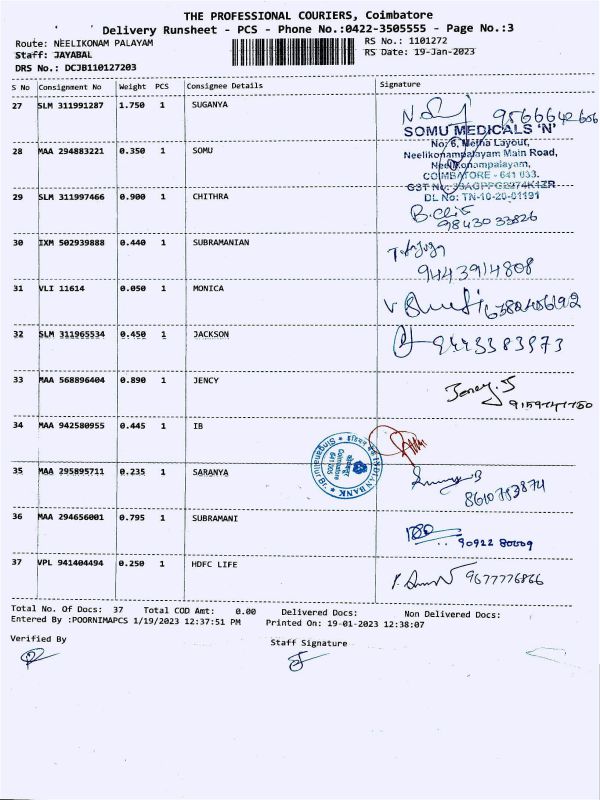 THE PROFESSIONAL COURIERS, Coimbatore
Delivery Runsheet - PCS - Phone No.:0422-3505555 - Page No.:3
Route: NEELIKONAM PALAYAM
RS No.: 1101272
Staff: JAYABAL
RS Date: 19-Jan-2023
DRS No.: DCJB110127203
S No Consignment No Weight PCS Consignee Details Signature
27 SLM 311991287 1.750 1 SUGANYA
9566642606
SOMU MEDICALS 'N'
No: 6, Metha Layout,
28 MAA 294883221 0.350 1 SOMU
Neelikonampalayam Main Road,
Neelikonampalayam,
COIMBATORE - 641 033.
GST No: 33AGPPG2274K1ZR
29 SLM 311997466 0.900 1 CHITHRA
DL No: TN-10-20-01191
9843033826
30 IXM 502939888 0.440 1 SUBRAMANIAN
9443914808
31 VLI 11614 0.050 1 MONICA
32 SLM 311965534 0.450 1 JACKSON
9443383973
33 MAA 568896404 0.890 1 JENCY
Jency.J
34 MAA 942580955 0.445 1 IB
INDIAN BANK
Singanallur Br.
Coimbatore
641 005
35 MAA 295895711 0.235 1 SARANYA
8610793874
36 MAA 294656001 0.795 1 SUBRAMANI
90922 80009
37 VPL 941404494 0.250 1 HDFC LIFE
9677776866
Total No. Of Docs: 37 Total COD Amt: 0.00 Delivered Docs: Non Delivered Docs:
Entered By :POORNIMAPCS 1/19/2023 12:37:51 PM Printed On: 19-01-2023 12:38:07
Verified By Staff Signature